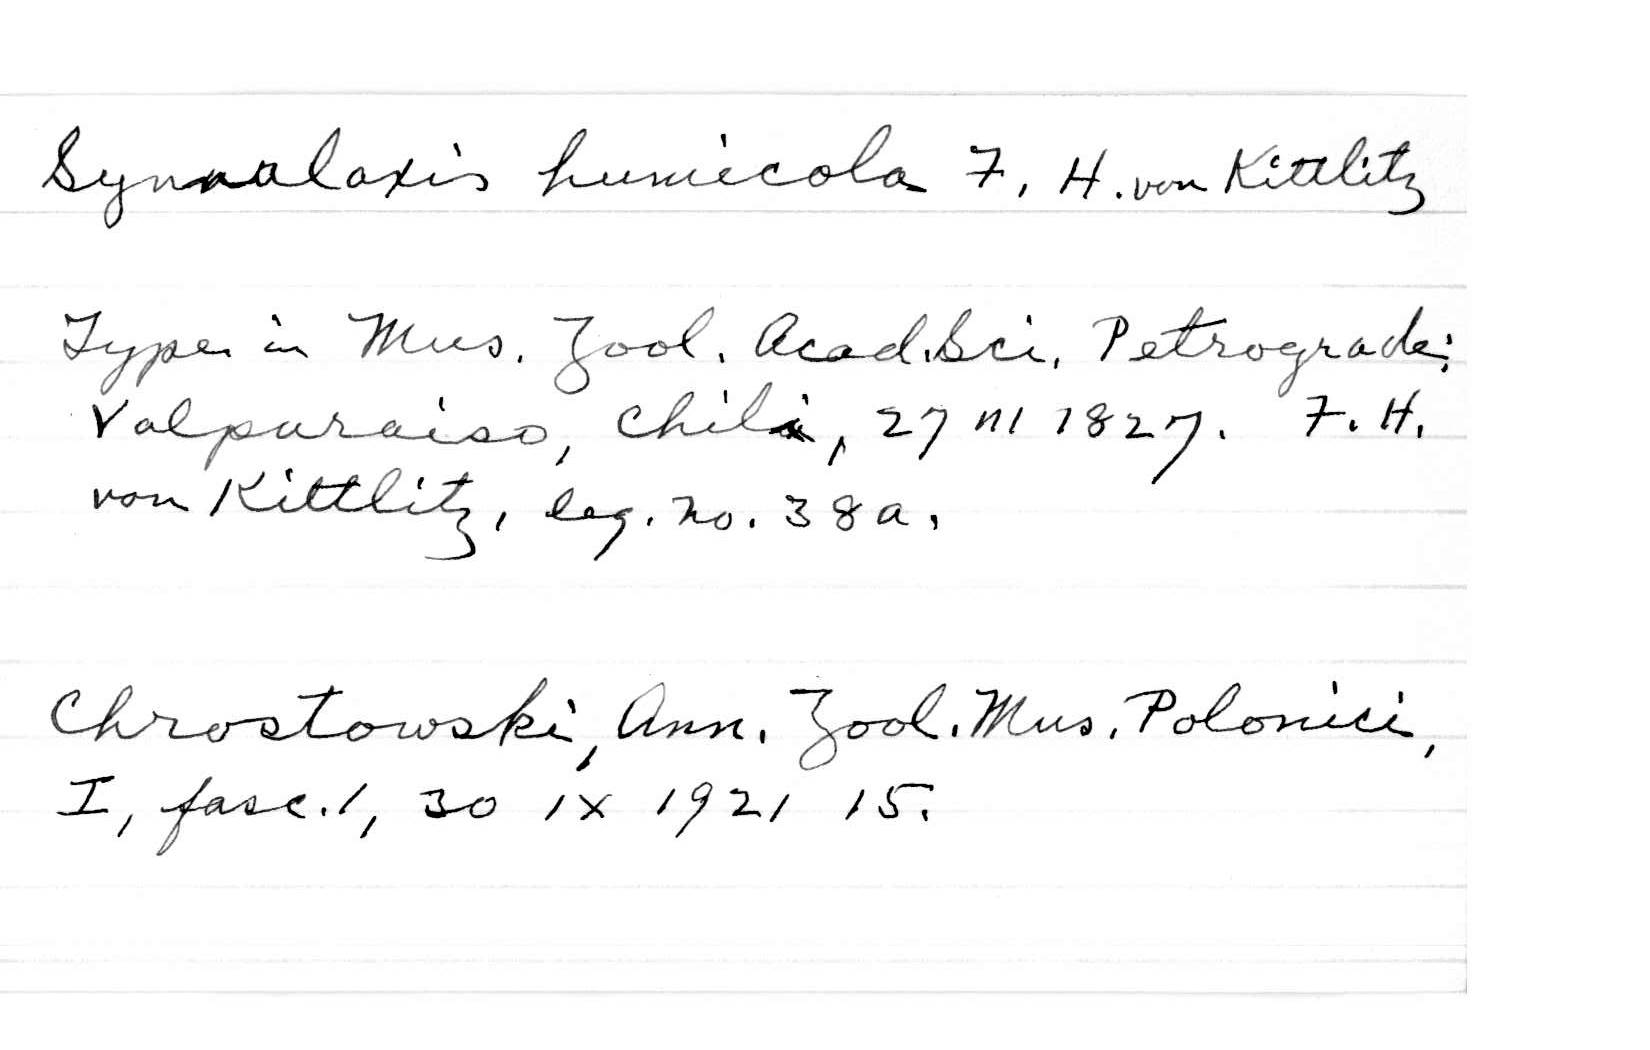 Synnalaxis humicola F. H. von Kittlitz
Type in Mus. Zool. Acad. Sci. Petrograde:
Valparaiso, Chili, 27 III 1827. F. H.
von Kittlitz, leg. no. 38a.
Chrostowski, Ann. Zool. Mus. Polonici,
I, fasc. 1, 30 IX 1921 15.